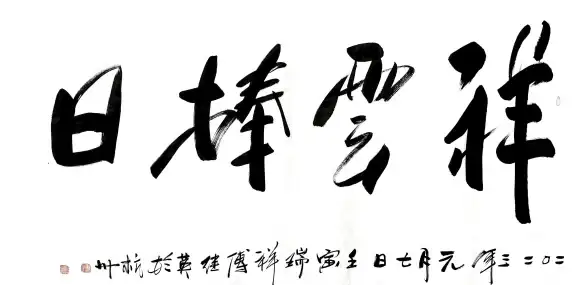 祥雲捧日
二〇二三年元月七日壬寅瑞祥傅英於杭州